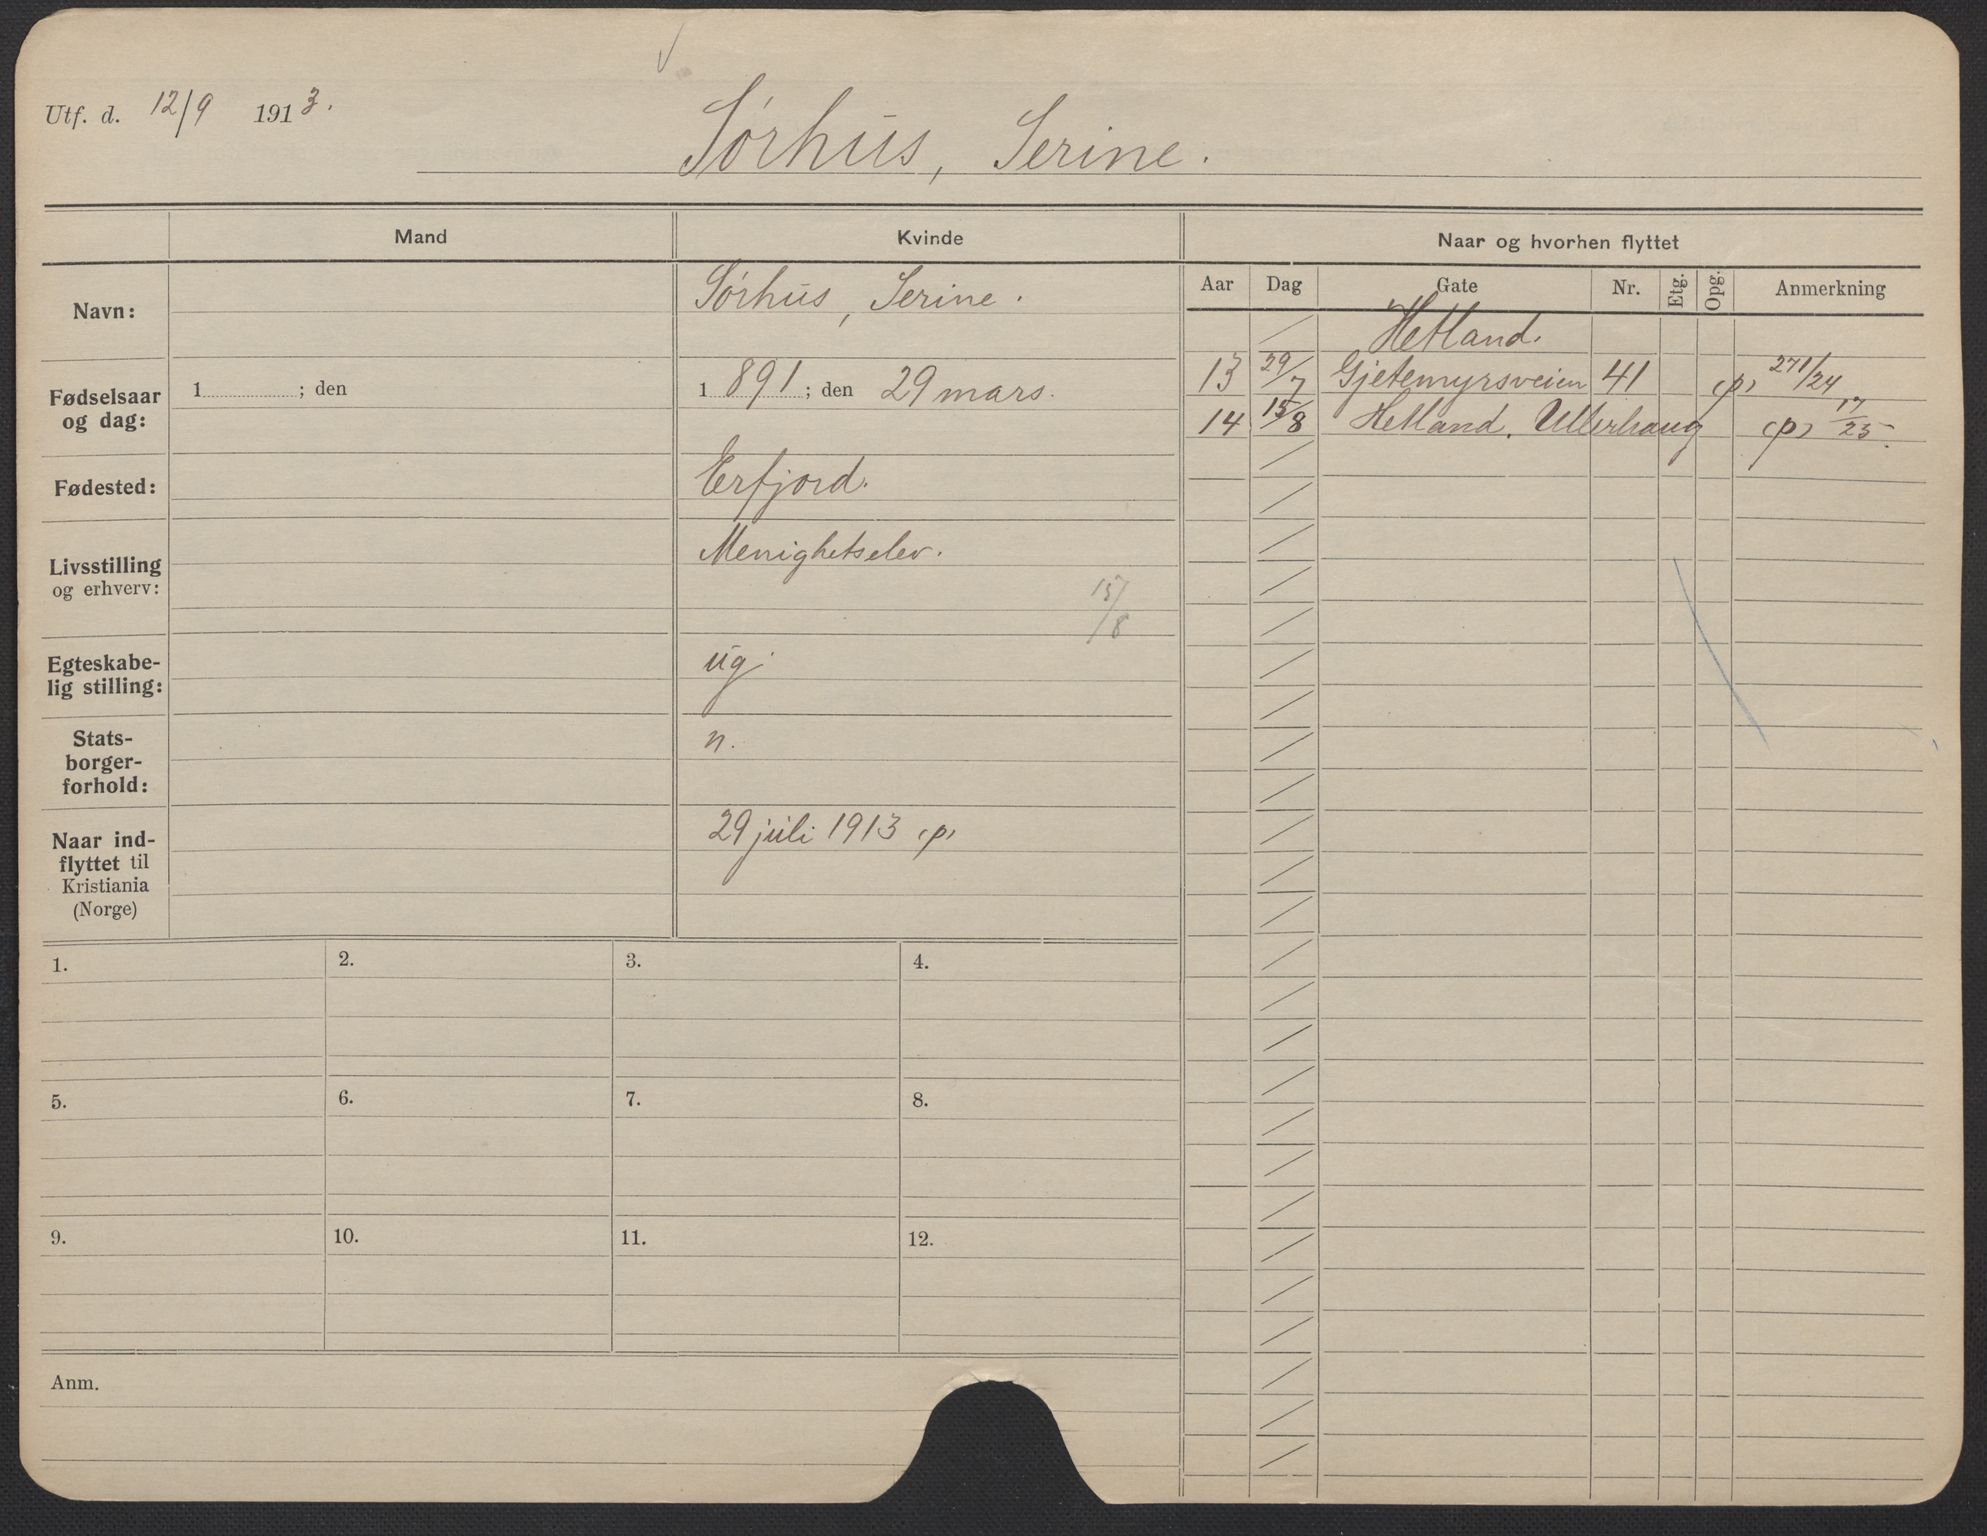 Utf. d. 12/9 1913.
Sørhus, Serine.
Mand
Kvinde
Naar og hvorhen flyttet
Aar Dag Gate Nr. Etg. Opg. Anmerkning
Navn:
Sørhus, Serine.
Fødselsaar
og dag:
1 ; den
1891; den 29 mars.
Fødested:
Erfjord.
Livsstilling
og erhverv:
Menighetselev.
15/8
Egteskabe-
lig stilling:
ug.
Stats-
borger-
forhold:
n.
Naar ind-
flyttet til
Kristiania
(Norge)
29 juli 1913 (p)
Hetland.
13 29/7 Gjetemyrsveien 41 (p) 271/24
14 15/8 Hetland, Ullerhaug (p) 17/25.
1. 2. 3. 4.
5. 6. 7. 8.
9. 10. 11. 12.
Anm.